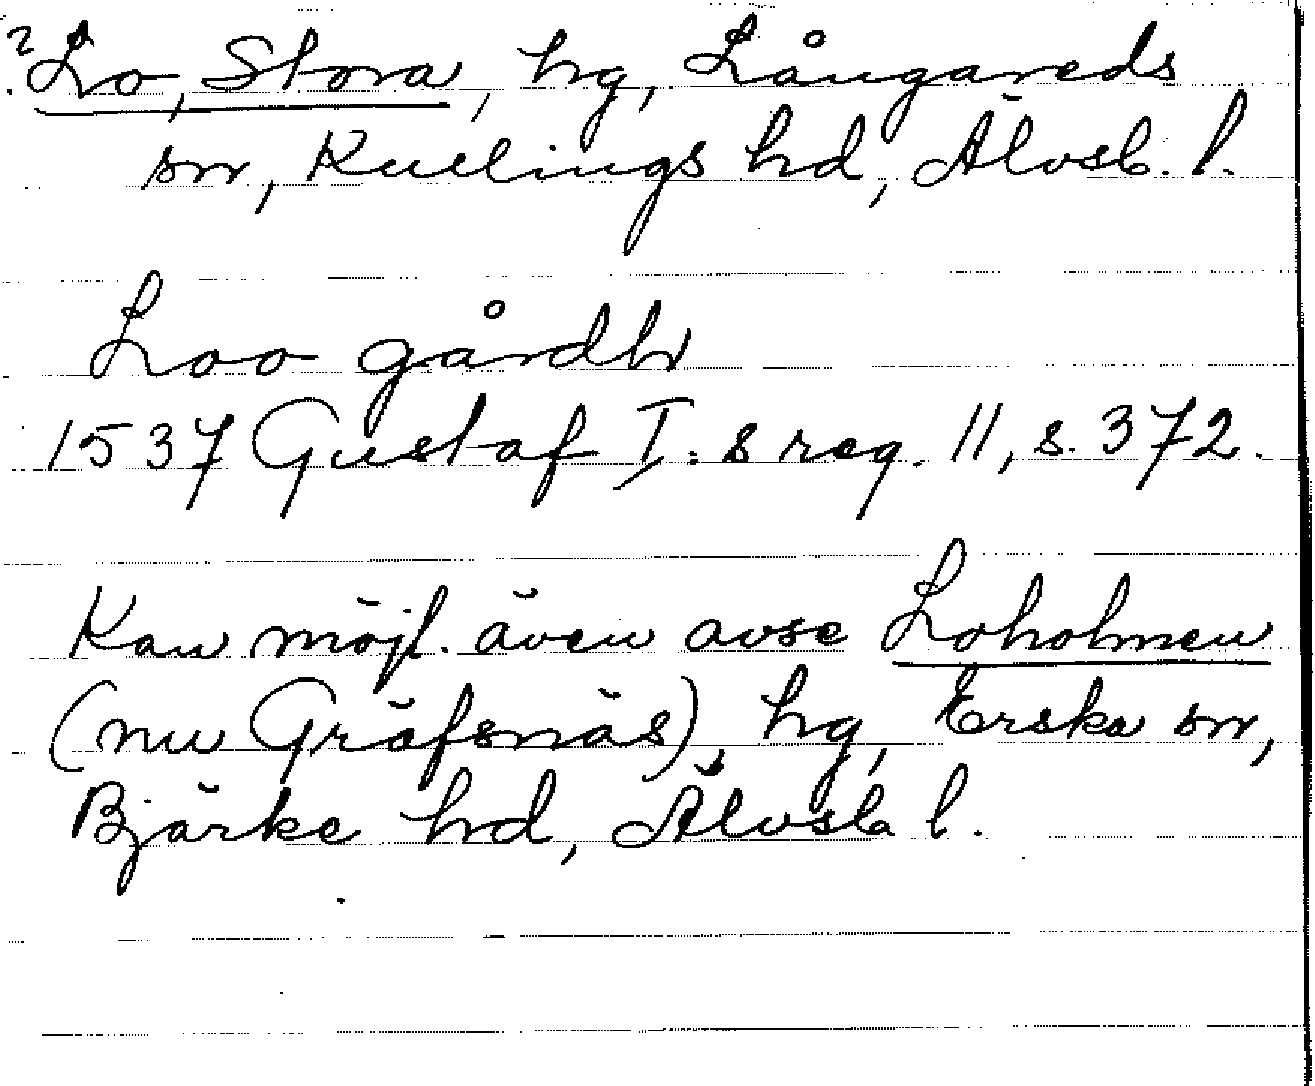 ? Lo, Stora, hg, Långareds
sn, Kullings hd, Älvsb. l.
Loo gårdh
1537 Gustaf I: s reg. 11, s. 372.
Kan möjl. även avse Loholmen
(nu Gräfsnäs), hg, Erska sn,
Bjärke hd, Älvsb l.